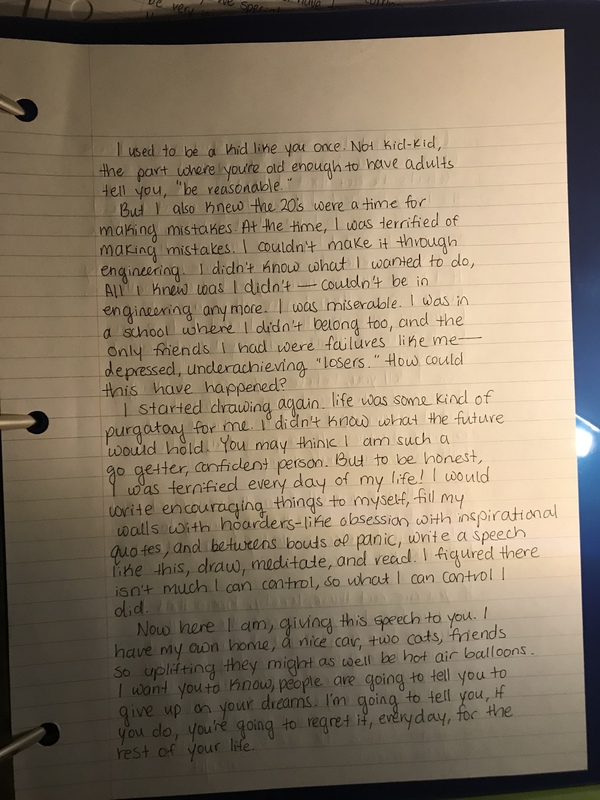 I used to be a kid like you once. Not kid-kid,
the part where you're old enough to have adults
tell you, "be reasonable."
But I also knew the 20's were a time for
making mistakes. At the time, I was terrified of
making mistakes. I couldn't make it through
engineering. I didn't know what I wanted to do,
All I knew was I didn't — couldn't be in
engineering anymore. I was miserable. I was in
a school where I didn't belong too, and the
only friends I had were failures like me—
depressed, underachieving "losers." How could
this have happened?
I started drawing again. life was some kind of
purgatory for me. I didn't know what the future
would hold. You may think I am such a
go getter, confident person. But to be honest,
I was terrified every day of my life! I would
write encouraging things to myself, fill my
walls with hoarders-like obsession with inspirational
quotes, and betweens bouts of panic, write a speech
like this, draw, meditate, and read. I figured there
isn't much I can control, so what I can control I
did.
Now here I am, giving this speech to you. I
have my own home, a nice car, two cats, friends
so uplifting they might as well be hot air balloons.
I want you to know, people are going to tell you to
give up on your dreams. I'm going to tell you, if
you do, you're going to regret it, everyday, for the
rest of your life.